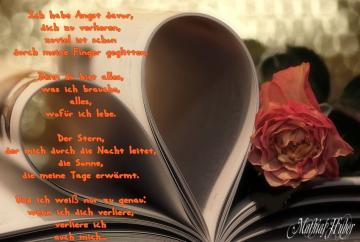 Ich habe Angst davor,
dich zu verlieren,
zuviel ist schon
durch meine Finger geglitten.
Denn du bist alles,
was ich brauche,
alles,
wofür ich lebe.
Der Stern,
der mich durch die Nacht leitet,
die Sonne,
die meine Tage erwärmt.
Und ich weiß nur zu genau:
wenn ich dich verliere,
verliere ich
auch mich...